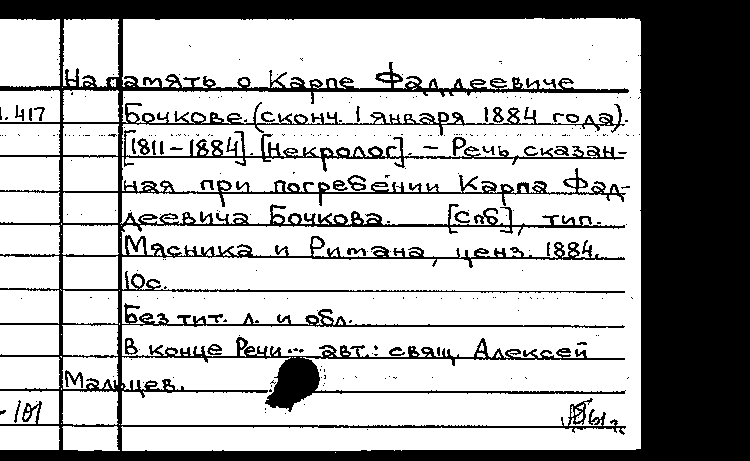 На память о Карпе Фаддеевиче
1.417 Бочкове. (сконч. 1 января 1884 года).
[1811-1884]. [Некролог]. - Речь, сказан-
ная при погребении Карпа Фад-
деевича Бочкова. [Спб.], тип.
Мясника и Ритана, ценз. 1884.
10с.
Без тит. л. и обл.
В конце Речи... авт.: свящ. Алексей
Мальцев.
- 101 61г.